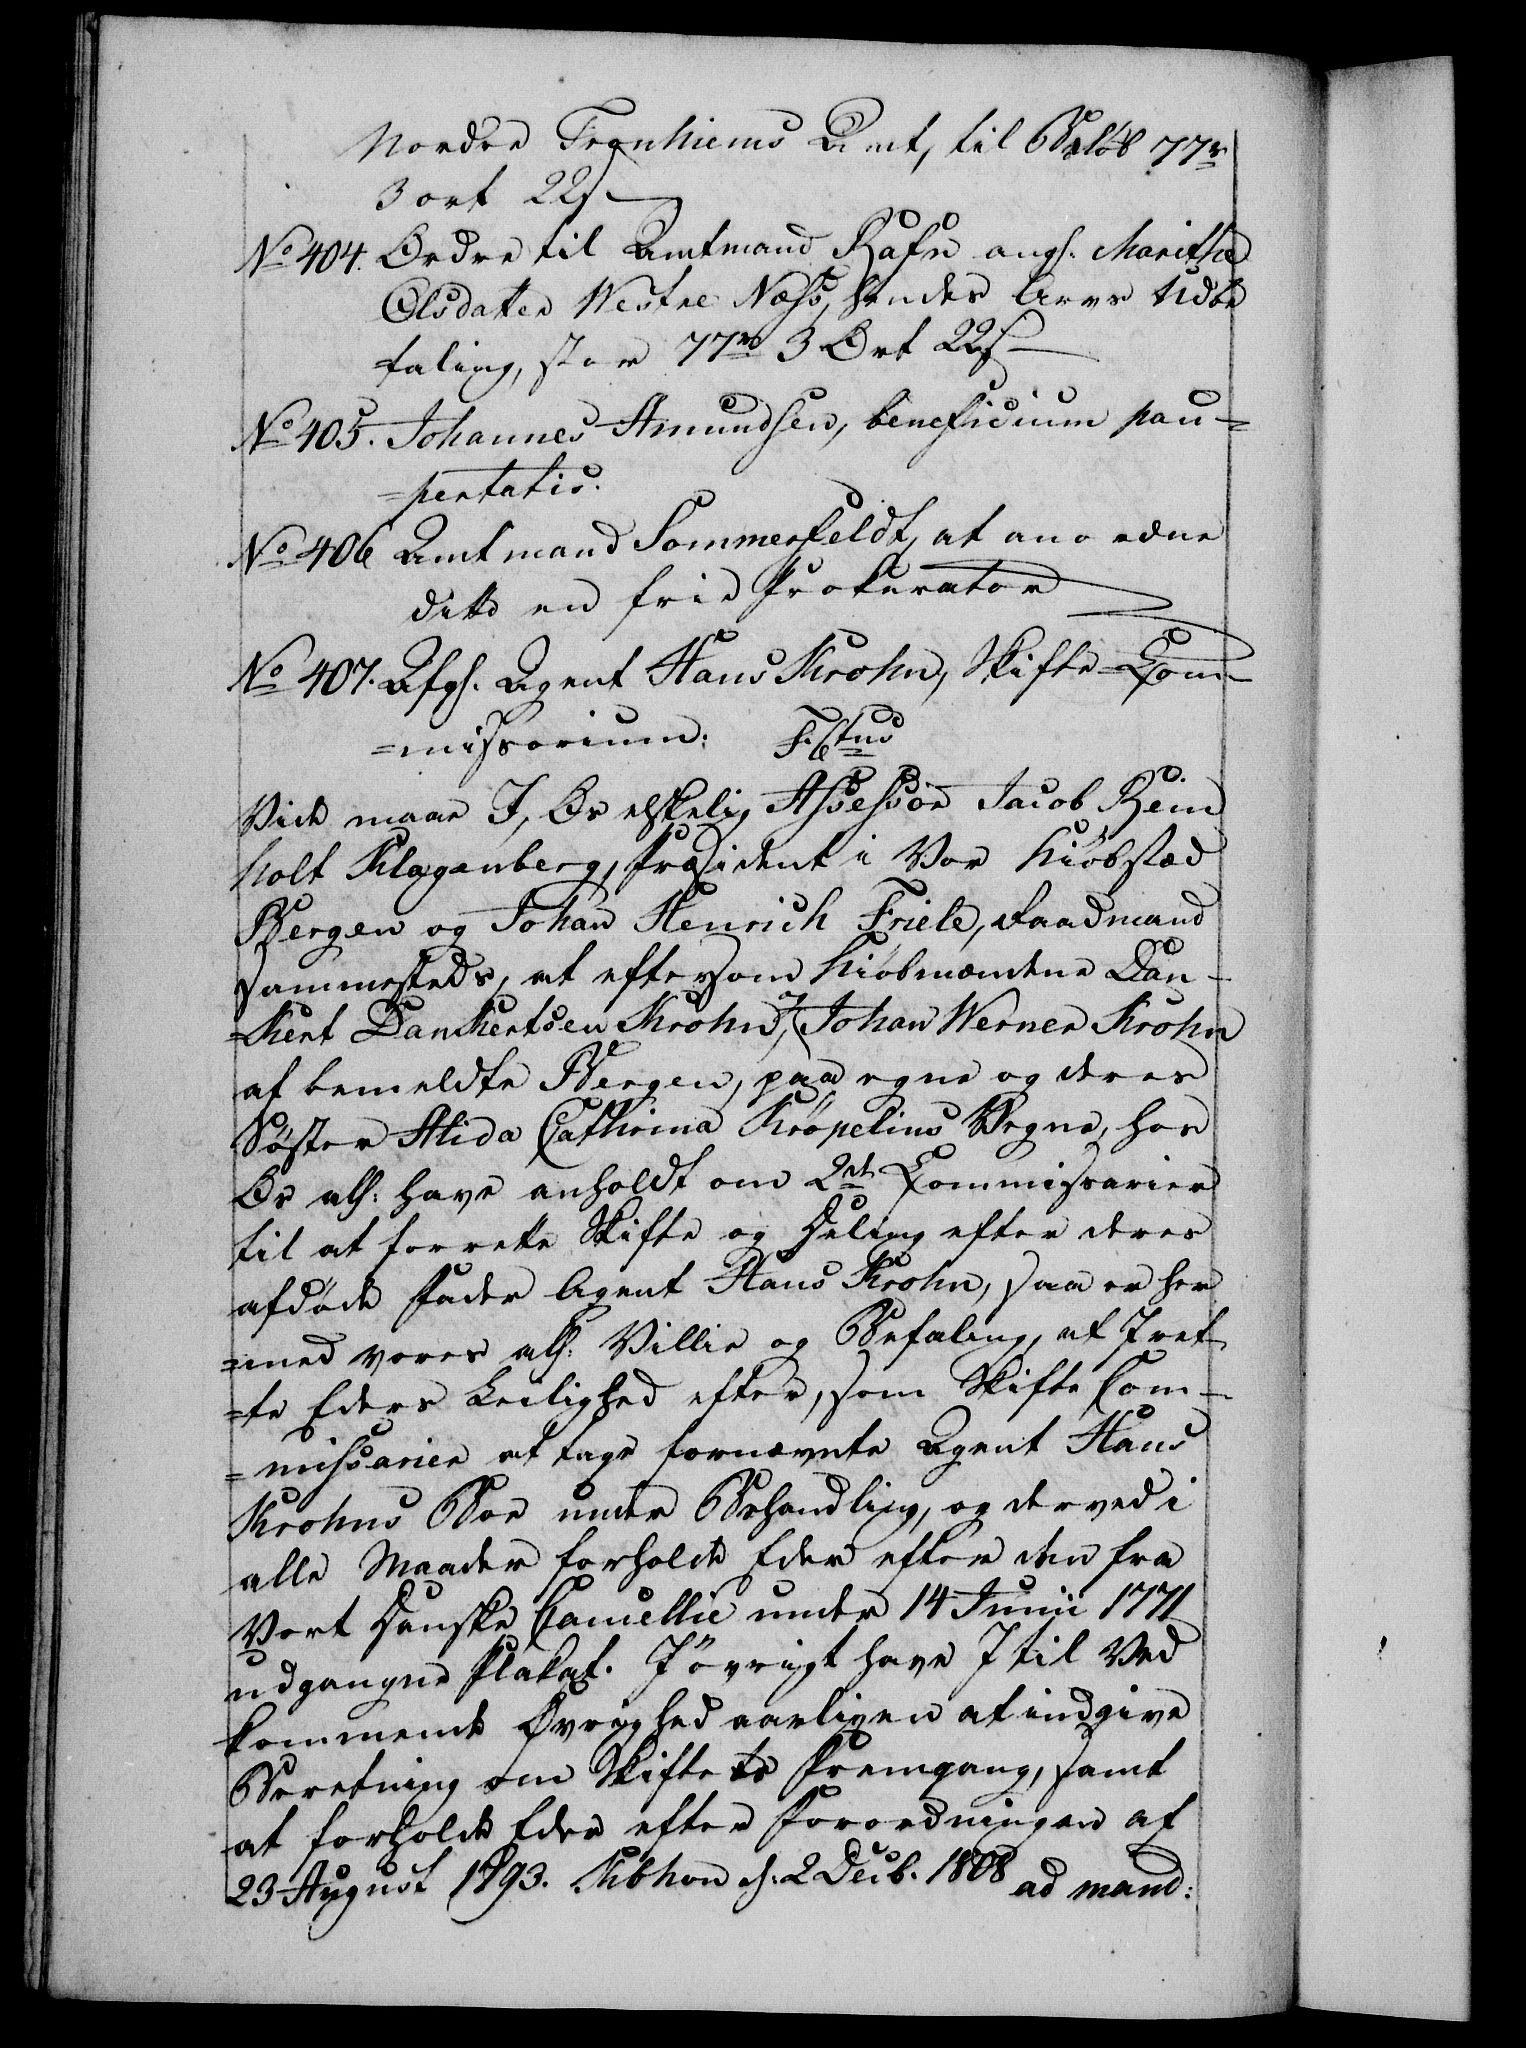 Nordre Tronhiems Amt, til Beløb 77 r
3 ort 22 s
No 404. Ordre til Amtmand Rafn angl. Marithe
Olsdatter Westre Næss, hendes Arvs Udbe
=taling, stor 77 r 3 Ort 22 s
No 405. Johannes Amundsen, beneficium pau=
=pertatis.
No 406 Amtmand Sommerfeldt, at anordne
ditto en frie Prokurator
No 407. Afgl. Agent Hans Krohn, Skifte-Com-
=missorium: F. 6tus
Vide maae I, Os elskelig Assessor Jacob Rein
holt Klagenberg, Præsident i Vor Kiøbstæd
Bergen og Johan Henrich Friele, Raadmand
sammesteds, at eftersom Kiøbmændene Dan-
=kert Dankertsen Krohn, og Johan Werner Krohn
af bemeldte Bergen, paa egne og deres
Søster Alida Cathrina Krøpelins Vegne, hos
Os all: have anholdt om 2de Commissarier
til at forrette Skifte og Deling efter deres
afdøde Fader Agent Hans Krohn, saa er her
=med vores all: Villie og Befaling, at I ret-
=te Eders Leilighed efter, som Skifte Com-
=missarier at tage fornævnte Agent Hans
Krohns Boe under Behandling, og derved i
alle Maader forholde Eder efter den fra
Vort Danske Cancellie under 14 Junii 1771
udgangne Plakat. I øvrigt have I til Ved
kommende Øvrighed aarligen at indgive
Beretning om Skiftets Fremgang, samt
at forholde Eder efter Forordningen af
23 August 1793. Kbhvn d. 2 Decb. 1808 ad mand: